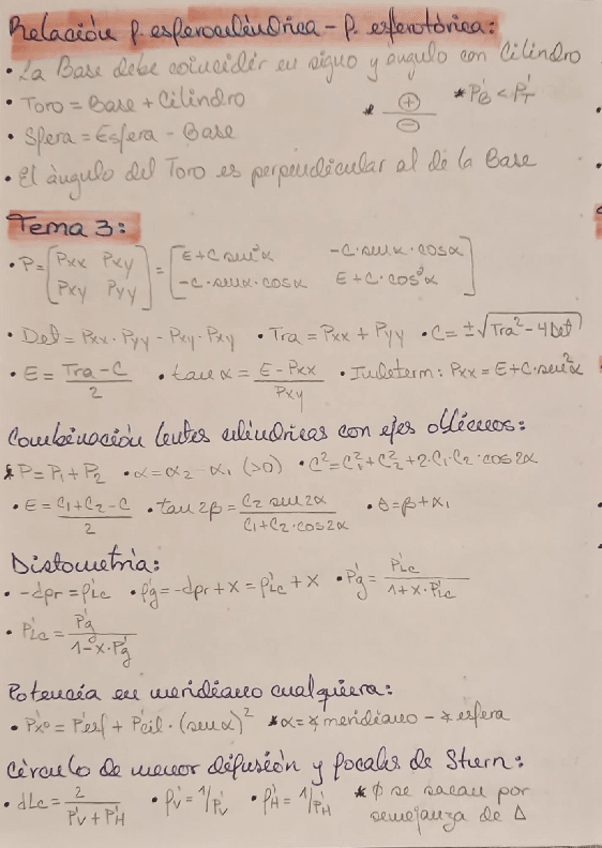 Relación p. esferocilíndrica - p. esferotórica:
• La Base debe coincidir en signo y ángulo con Cilindro
• Toro = Base + Cilindro * ⊕/⊖ * P'B < P'T
• Sfera = Esfera - Base
• El ángulo del Toro es perpendicular al de la Base
Tema 3:
• P = [Pxx Pxy; Pxy Pyy] = [E + C sen²α -C·senα·cosα; -C·senα·cosα E + C·cos²α]
• Det = Pxx·Pyy - Pxy·Pxy • Tra = Pxx + Pyy • C = ±√(Tra² - 4Det)
• E = (Tra - C)/2 • tan α = (E - Pxx)/Pxy • Indeterm: Pxx = E + C·sen²α
Combinación lentes cilíndricas con ejes oblicuos:
* P = P1 + P2 • α = α2 - α1 (>0) • C² = C1² + C2² + 2·C1·C2·cos2α
• E = (C1 + C2 - C)/2 • tan 2β = (C2 sen2α)/(C1 + C2·cos2α) • θ = β + α1
Distometría:
• -dpr = ρ'Lc • ρ'g = -dpr + x = ρ'Lc + x • P'g = P'Lc/(1 + x·P'Lc)
• P'Lc = P'g/(1 - x·P'g)
Potencia en meridiano cualquiera:
• P'xº = P'esf + P'cil·(senα)² * α = ∡ meridiano - ∡ esfera
Círculo de menor difusión y focales de Sturn:
• dLc = 2/(P'V + P'H) • ρ'V = 1/P'V • ρ'H = 1/P'H * ϕ se sacan por
semejanza de Δ